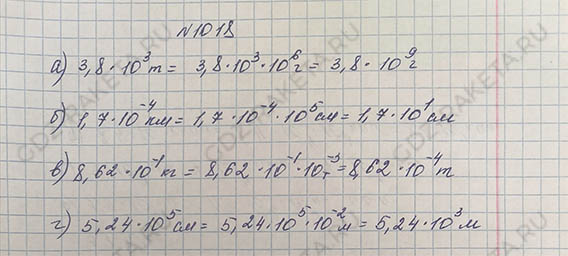 №1018
а) 3,8·10³т = 3,8·10³·10⁶г = 3,8·10⁹г
б) 1,7·10⁻⁴км = 1,7·10⁻⁴·10⁵см = 1,7·10¹см
в) 8,62·10⁻¹кг = 8,62·10⁻¹·10⁻³т = 8,62·10⁻⁴т
г) 5,24·10⁵см = 5,24·10⁵·10⁻²м = 5,24·10³м
GDZ-RAKETA.RU